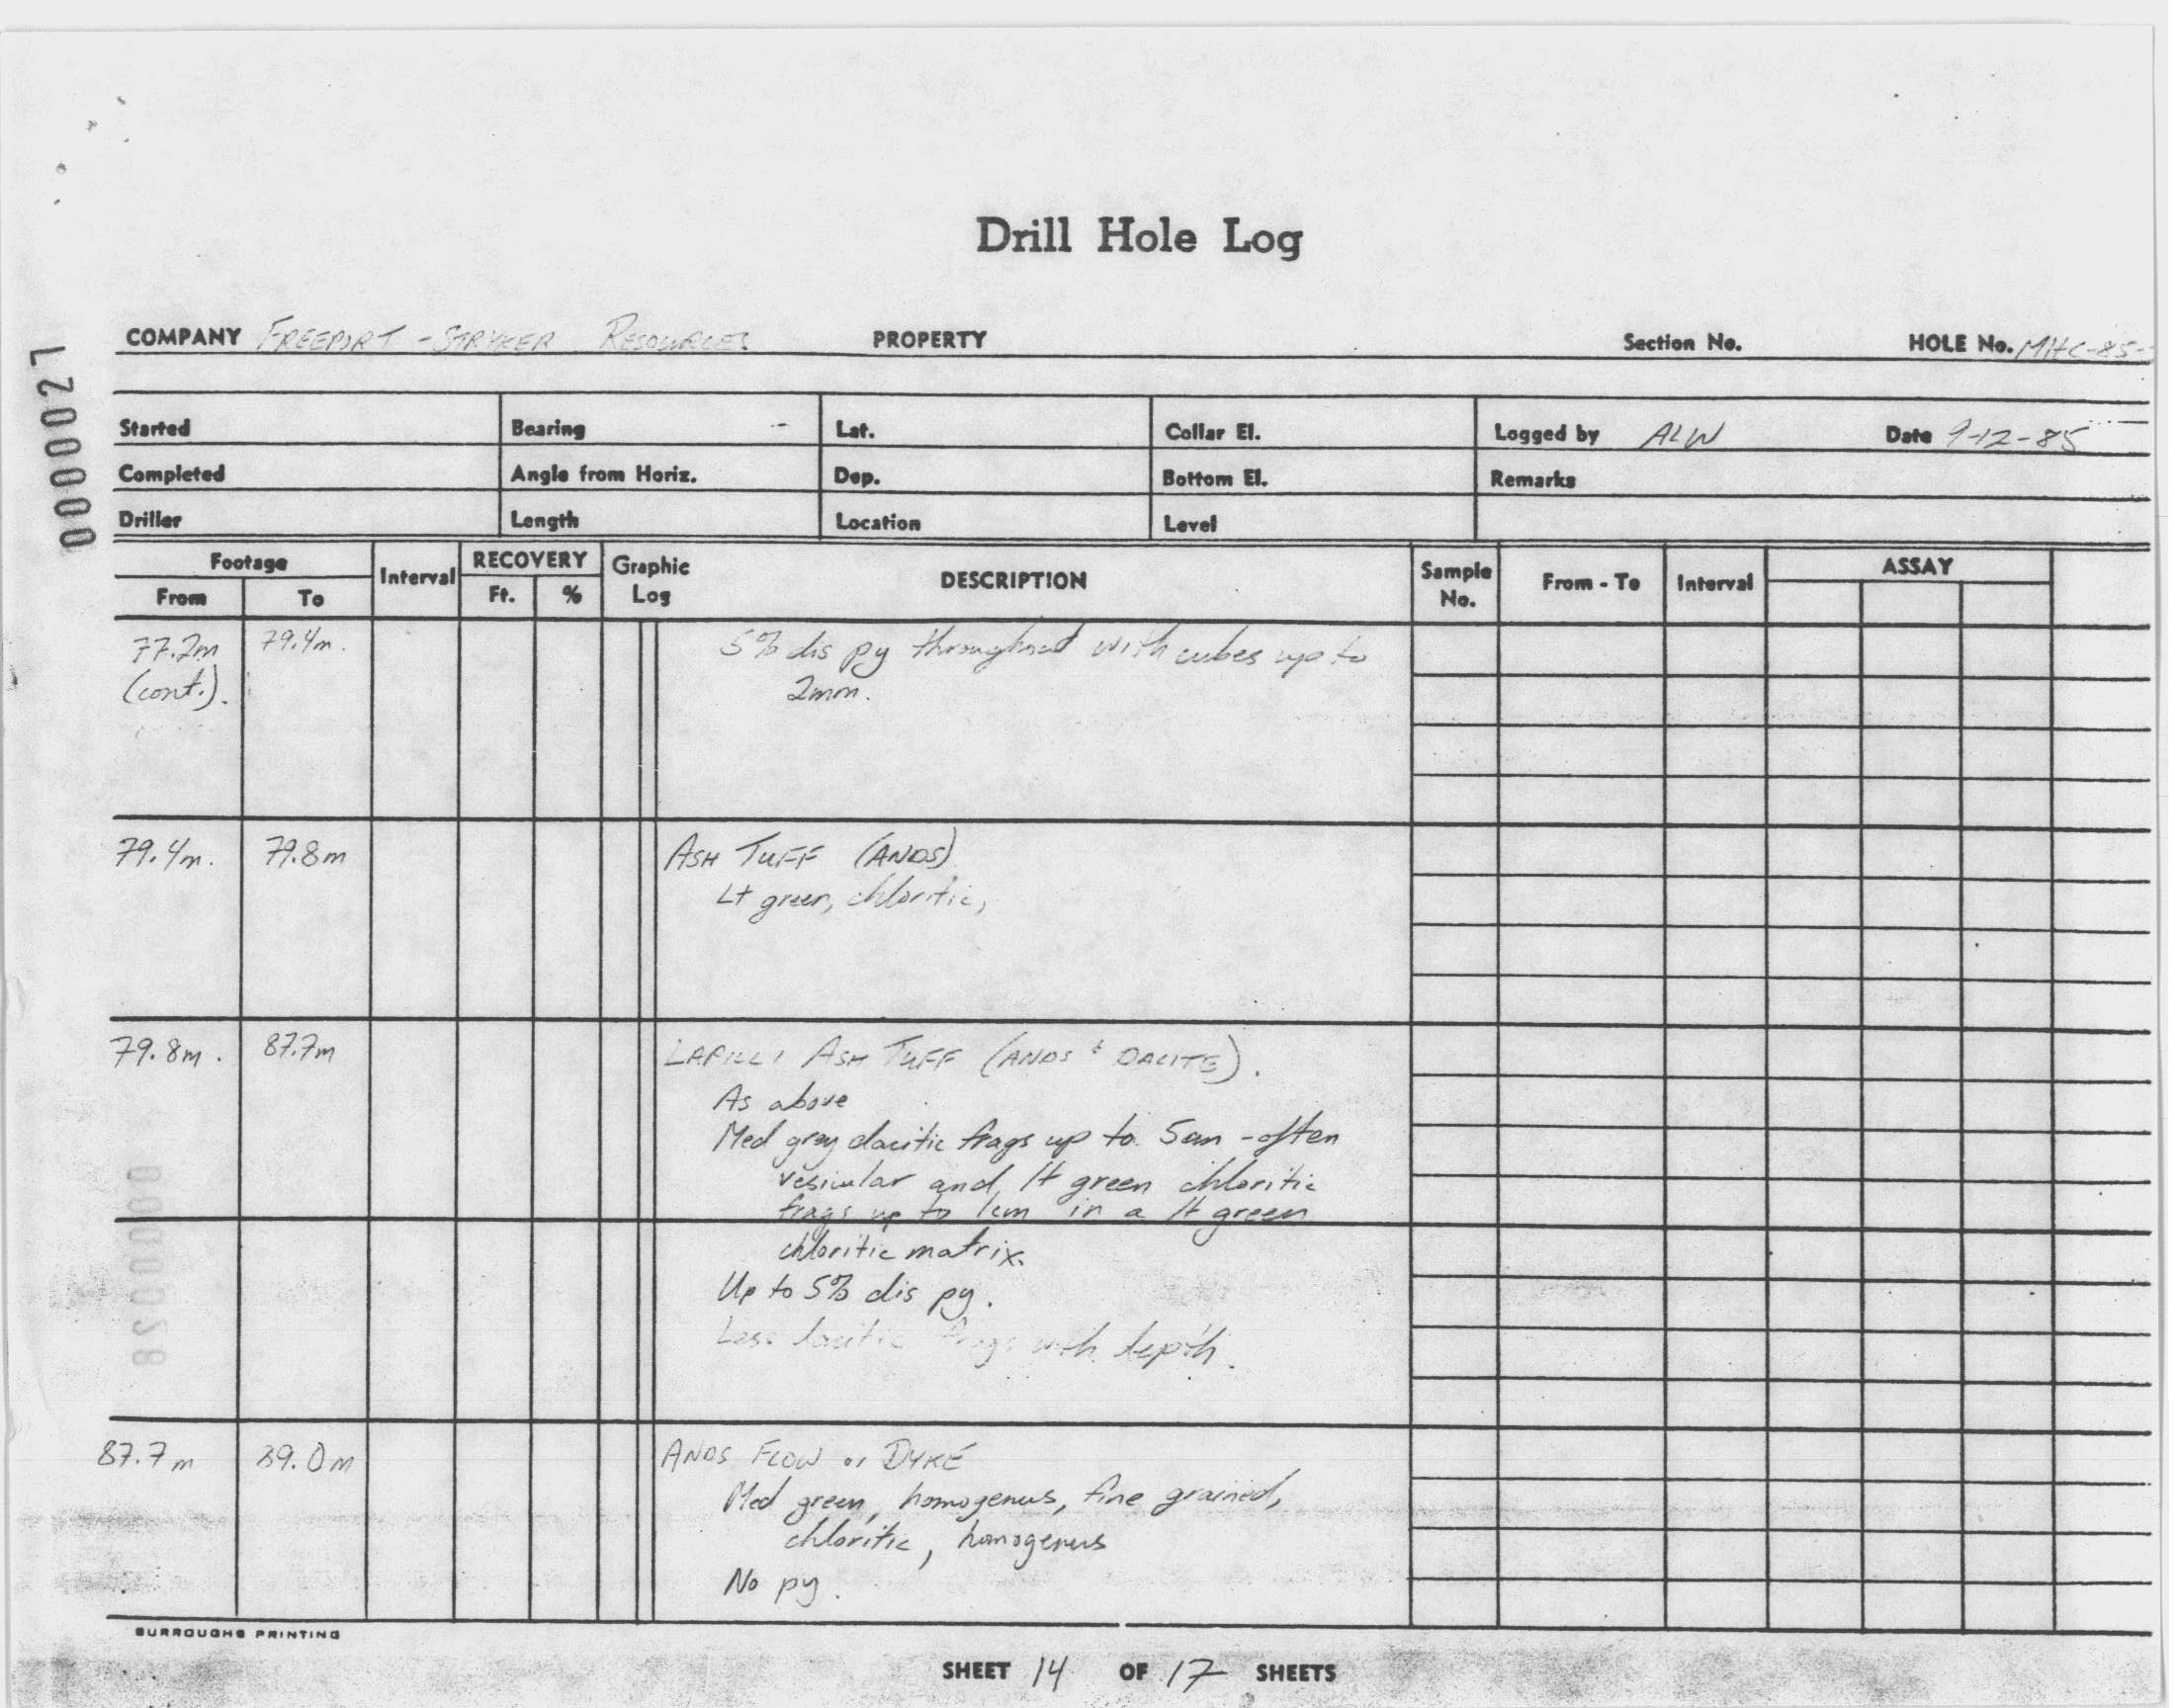 Drill Hole Log
COMPANY FREEPORT - STRYKER RESOURCES PROPERTY Section No. HOLE No. MHC-85-
0000027
Started Bearing Lat. Collar El. Logged by ALW Date 9-12-85
Completed Angle from Horiz. Dep. Bottom El. Remarks
Driller Length Location Level
Footage Interval RECOVERY Graphic Log DESCRIPTION Sample No. From - To Interval ASSAY
From To Ft. %
77.2m 79.4m. 5% dis py throughout with cubes up to
(cont.). 2mm.
79.4m. 79.8m ASH TUFF (ANDS)
Lt green, chloritic,
79.8m. 87.7m LAPILLI ASH TUFF (ANDS & DACITE).
As above
Med grey dacitic frags up to 5cm - often
vesicular and lt green chloritic
frags up to 1cm in a lt green
chloritic matrix.
Up to 5% dis py.
Less dacitic frags with depth.
0000028
87.7m 89.0m ANDS FLOW or DYKE
Med green, homogenus, fine grained,
chloritic, homogenus
No py.
BURROUGHS PRINTING
SHEET 14 OF 17 SHEETS